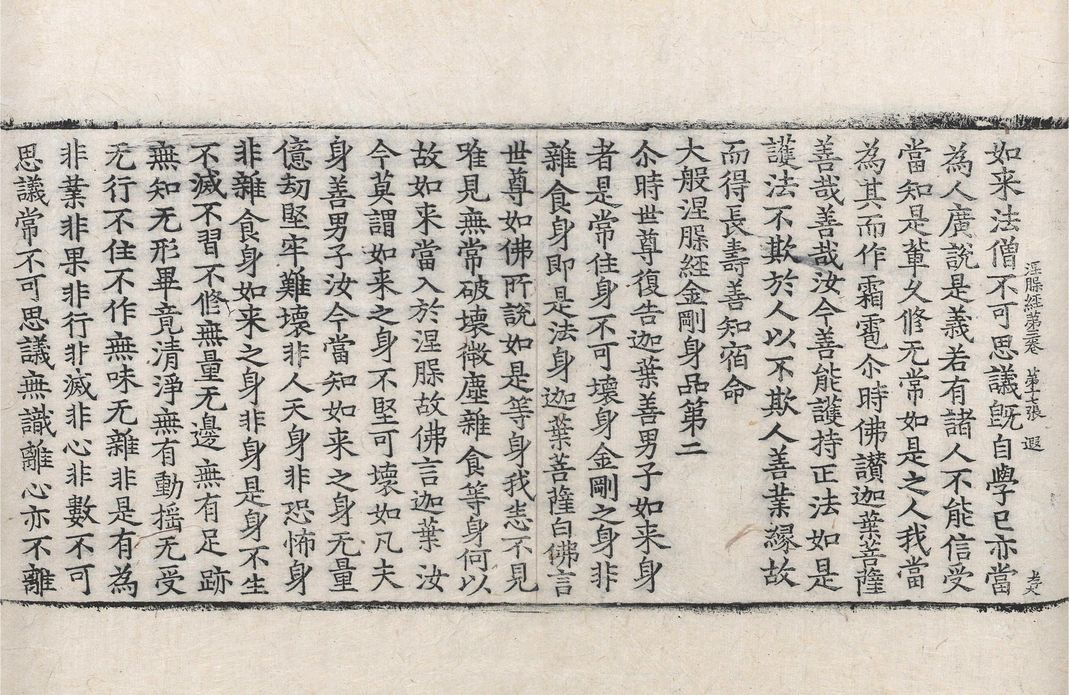 涅槃經第三卷 第十張 遐
如来法僧不可思議旣自學已亦當
為人廣說是義若有諸人不能信受
當知是軰乆修无常如是之人我當
為其而作霜雹尒時佛讃迦葉菩薩
善哉善哉汝今善能護持正法如是
護法不欺於人以不欺人善業縁故
而得長壽善知宿命
大般涅槃經金剛身品第二
尒時世尊復告迦葉善男子如来身
者是常住身不可壞身金剛之身非
雜食身即是法身迦葉菩薩白佛言
世尊如佛所說如是等身我悉不見
唯見無常破壞微塵雜食等身何以
故如来當入於涅槃故佛言迦葉汝
今莫謂如来之身不堅可壞如凡夫
身善男子汝今當知如来之身无量
億劫堅牢難壞非人天身非恐怖身
非雜食身如来之身非身是身不生
不滅不習不修無量无邊無有足跡
無知无形畢竟清淨無有動揺无受
无行不住不作無味无雜非是有為
非業非果非行非滅非心非數不可
思議常不可思議無識離心亦不離